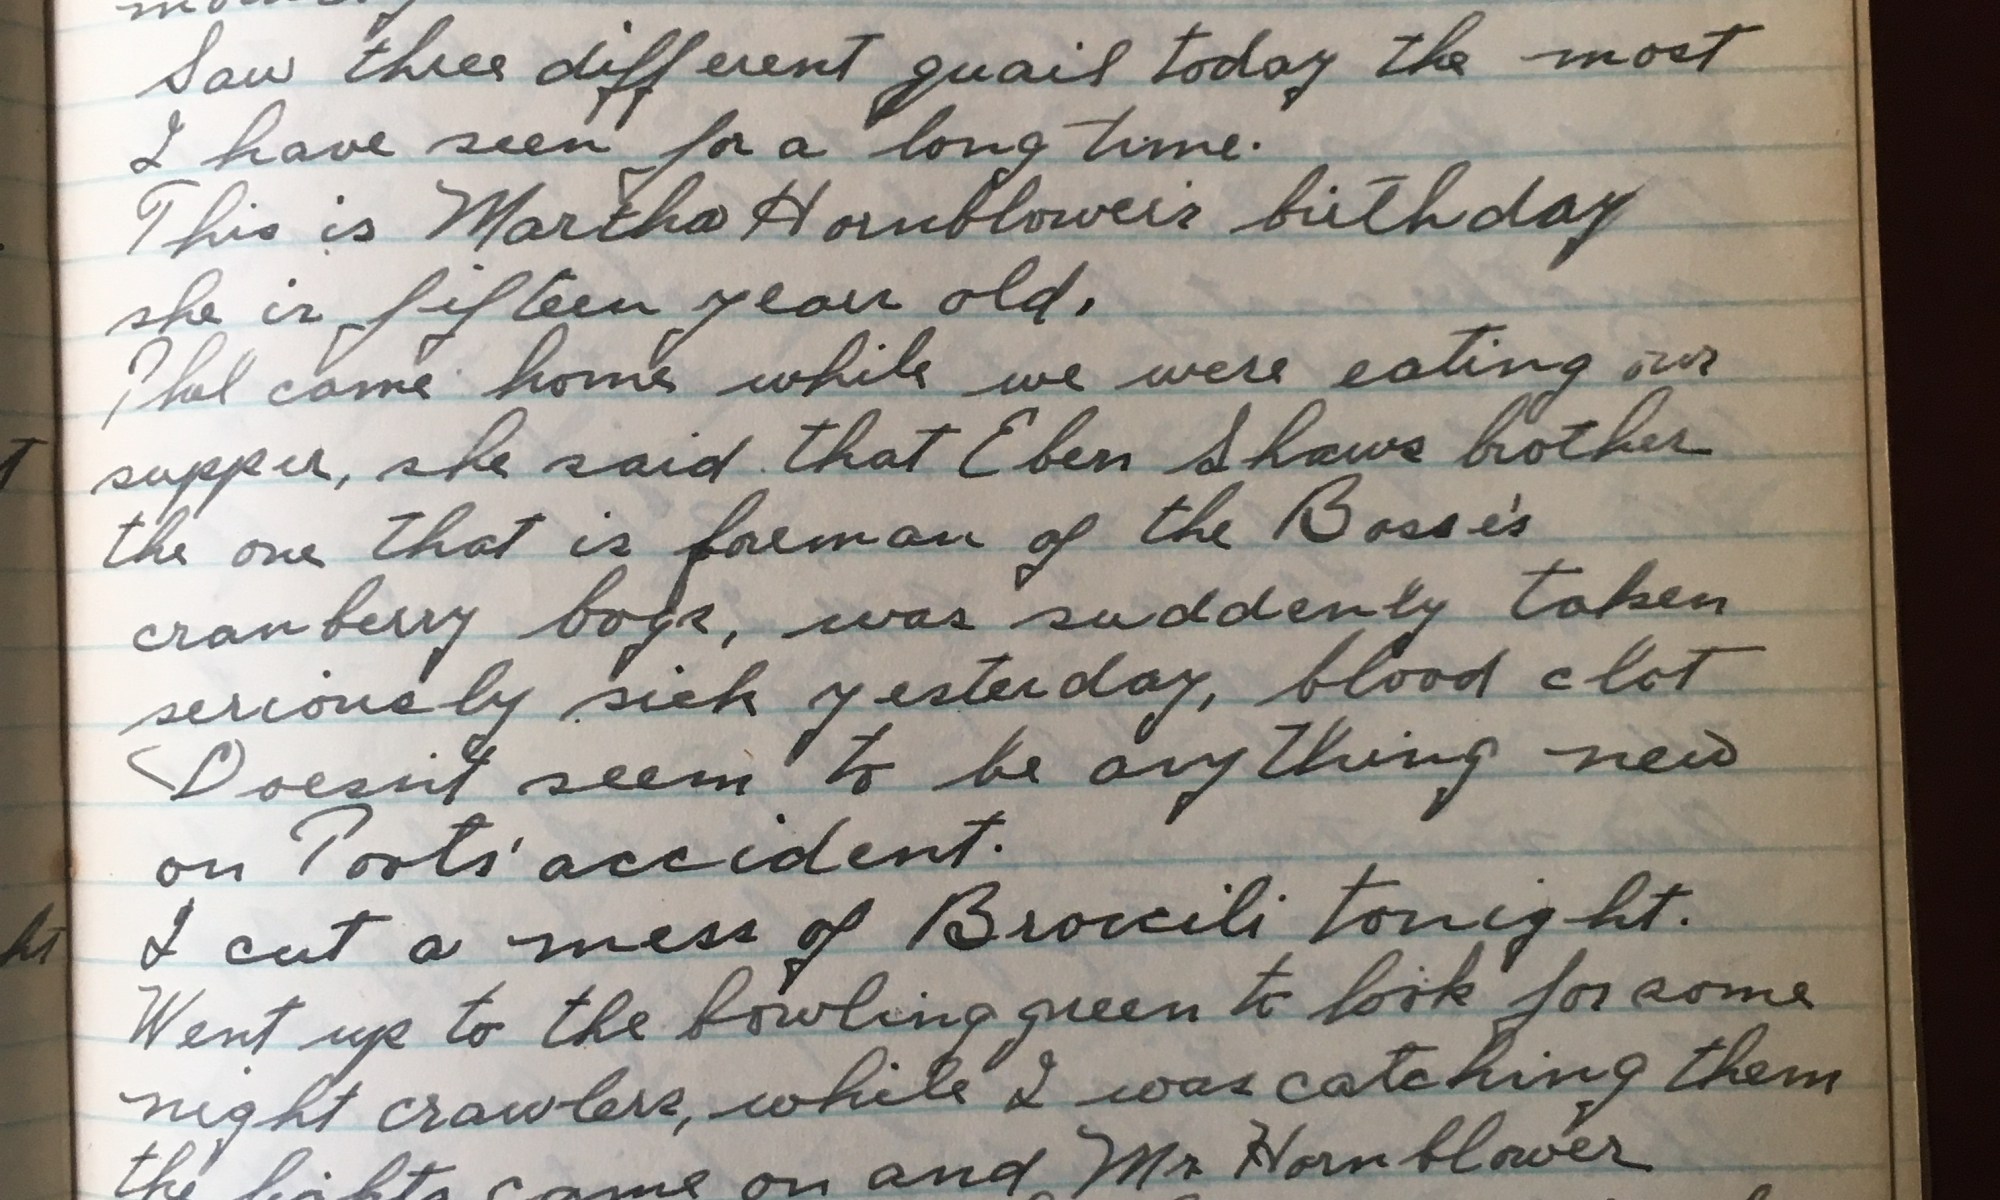 Saw three different quail today the most
I have seen for a long time.
This is Martha Hornblower's birthday
she is fifteen years old.
Phol came home while we were eating our
supper, she said that Eben Shaws brother
the one that is foreman of the Bosse's
cranberry bogs, was suddenly taken
seriously sick yesterday, blood clot
Doesn't seem to be anything new
on Poots' accident.
I cut a mess of Brocili tonight.
Went up to the bowling green to look for some
night crawlers, while I was catching them
the lights came on and Mr Hornblower